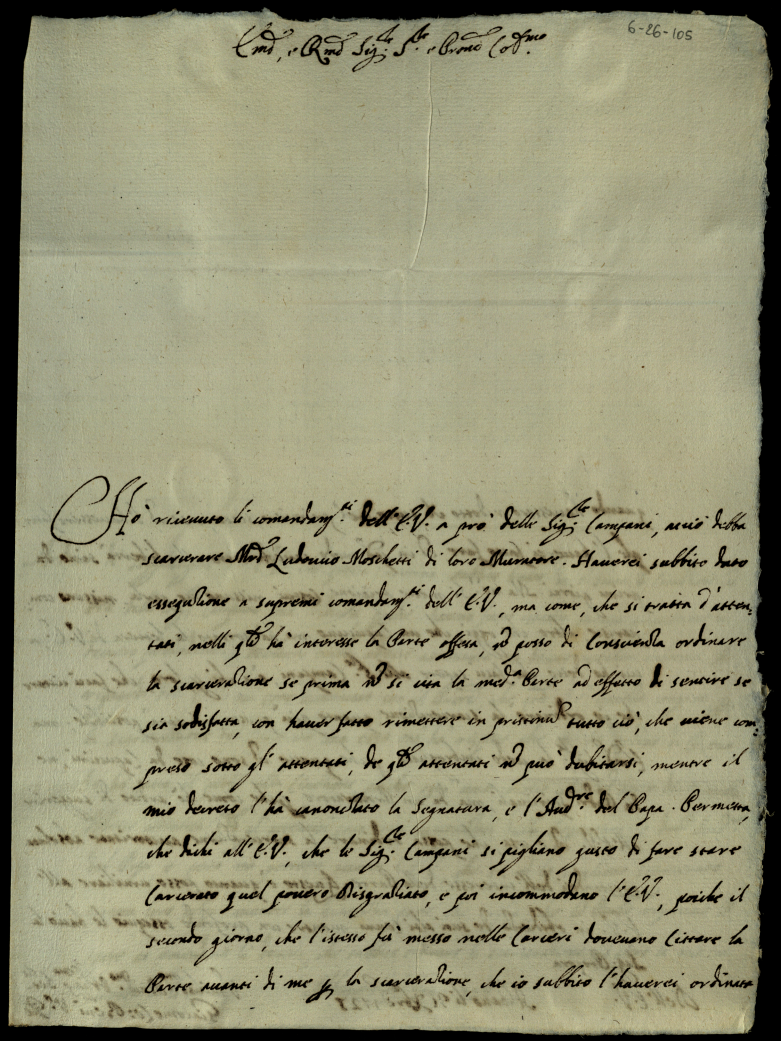 6-26-105
Emo, e Rmo Sig.re S.re e Prone Col.mo
Hò riceuuto li comandam.ti dell'E.V. a prò delle Sig.re Campani, acciò debba
scarcerare Mro Ludouico Moschetti di loro Muratore. Hauerei subbito dato
essegutione a supremi comandam.ti dell'E.V., ma come, che si tratta d'atten-
tati, nelli qli hà interesse la Parte offesa, nō posso di Conscienza ordinare
la scarceratione se prima nō si cita la med.a Parte ad effetto di sentire se
sia sodisfatta, con hauer fatto rimettere in pristinū tutto ciò, che uiene com-
preso sotto gl'attentati, de qli attentati nō può dubitarsi, mentre il
mio decreto l'hà canonizato la Segnatura, e l'Aud.re del Papa. Permetta,
che dichi all'E.V., che le Sig.re Campani si pigliano gusto di fare stare
Carcerato quel pouero disgratiato, e poi incommodano l'E.V., poiche il
secondo giorno, che l'istesso fù messo nelle Carceri doueuano Cittare la
Parte auanti di me p la scarceratione, che io subbito l'hauerei ordinata